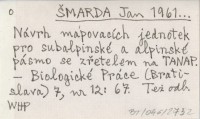 o
ŠMARDA Jan 1961...
Návrh mapovacích jednotek
pro subalpinské a alpinské
pásmo se zřetelem na TANAP.
– Biologické Práce (Brati-
slava) 7, nr 12: 67. Též odb.
WHP